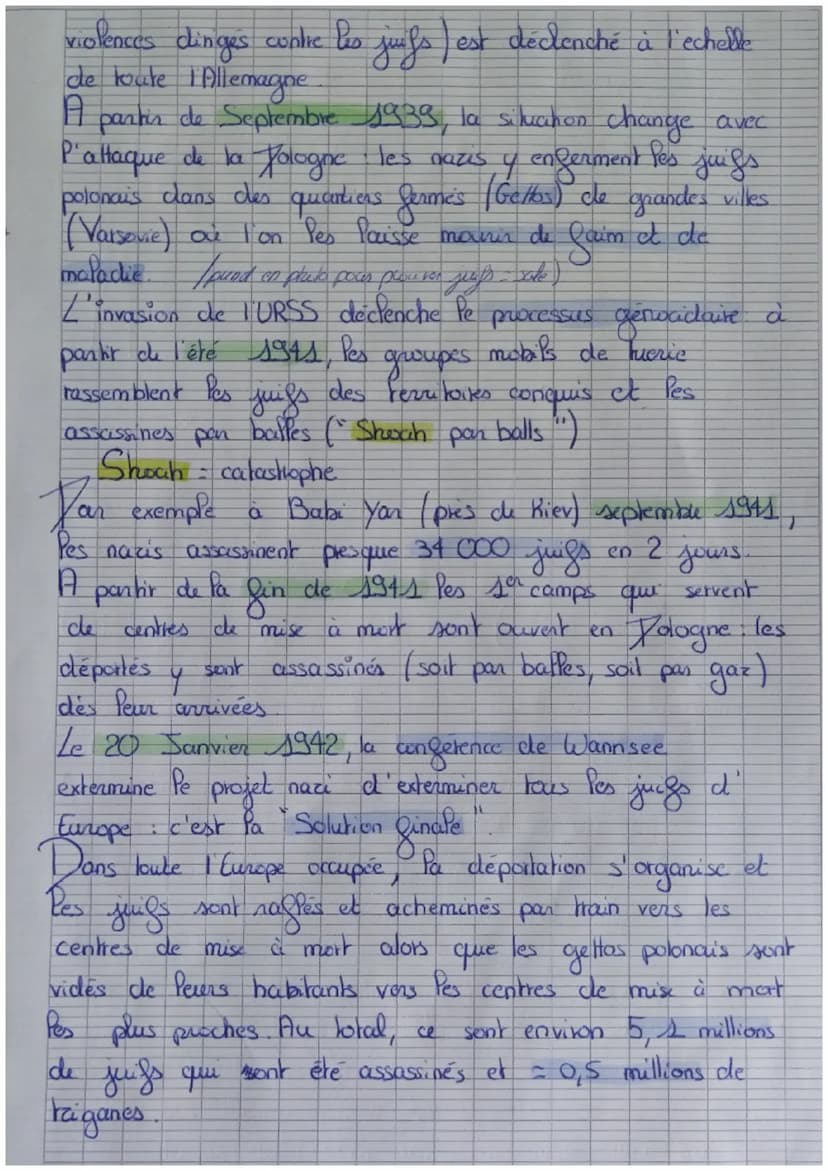 violences dirigés contre les juifs) est déclenché à l'echelle
de toute l'Allemagne.
A partir de Septembre 1939, la situation change avec
l'attaque de la Pologne : les nazis y enferment les juifs
polonais dans des quartiers fermés (Gettos) de grandes villes
(Varsovie) où l'on les laisse mourir de faim et de
maladie. (prend en photo pour prouver juifs = sale)
L'invasion de l'URSS déclenche le processus génocidaire à
partir de l'été 1941, les groupes mobils de tuerie
rassemblent les juifs des territoires conquis et les
assassines par balles ("Shoah par balls")
Shoah = catastrophe
Par exemple à Babi Yar (près de Kiev) septembre 1941,
les nazis assassinent presque 34 000 juifs en 2 jours.
A partir de la fin de 1941 les 1er camps qui servent
de centres de mise à mort sont ouvent en Pologne : les
déportés y sont assassinés (soit par balles, soit par gaz)
dès leur arrivées
Le 20 Janvier 1942, la conférence de Wannsee
extermine le projet nazi d'exterminer tous les juifs d'
Europe : c'est la "Solution finale".
Dans toute l'Europe occupée, la déportation s'organise et
les juifs sont raflés et acheminés par train vers les
centres de mise à mort alors que les gettos polonais sont
vidés de leurs habitants vers les centres de mise à mort
les plus proches. Au total, ce sont environ 5,1 millions
de juifs qui sont été assassinés et = 0,5 millions de
tziganes.